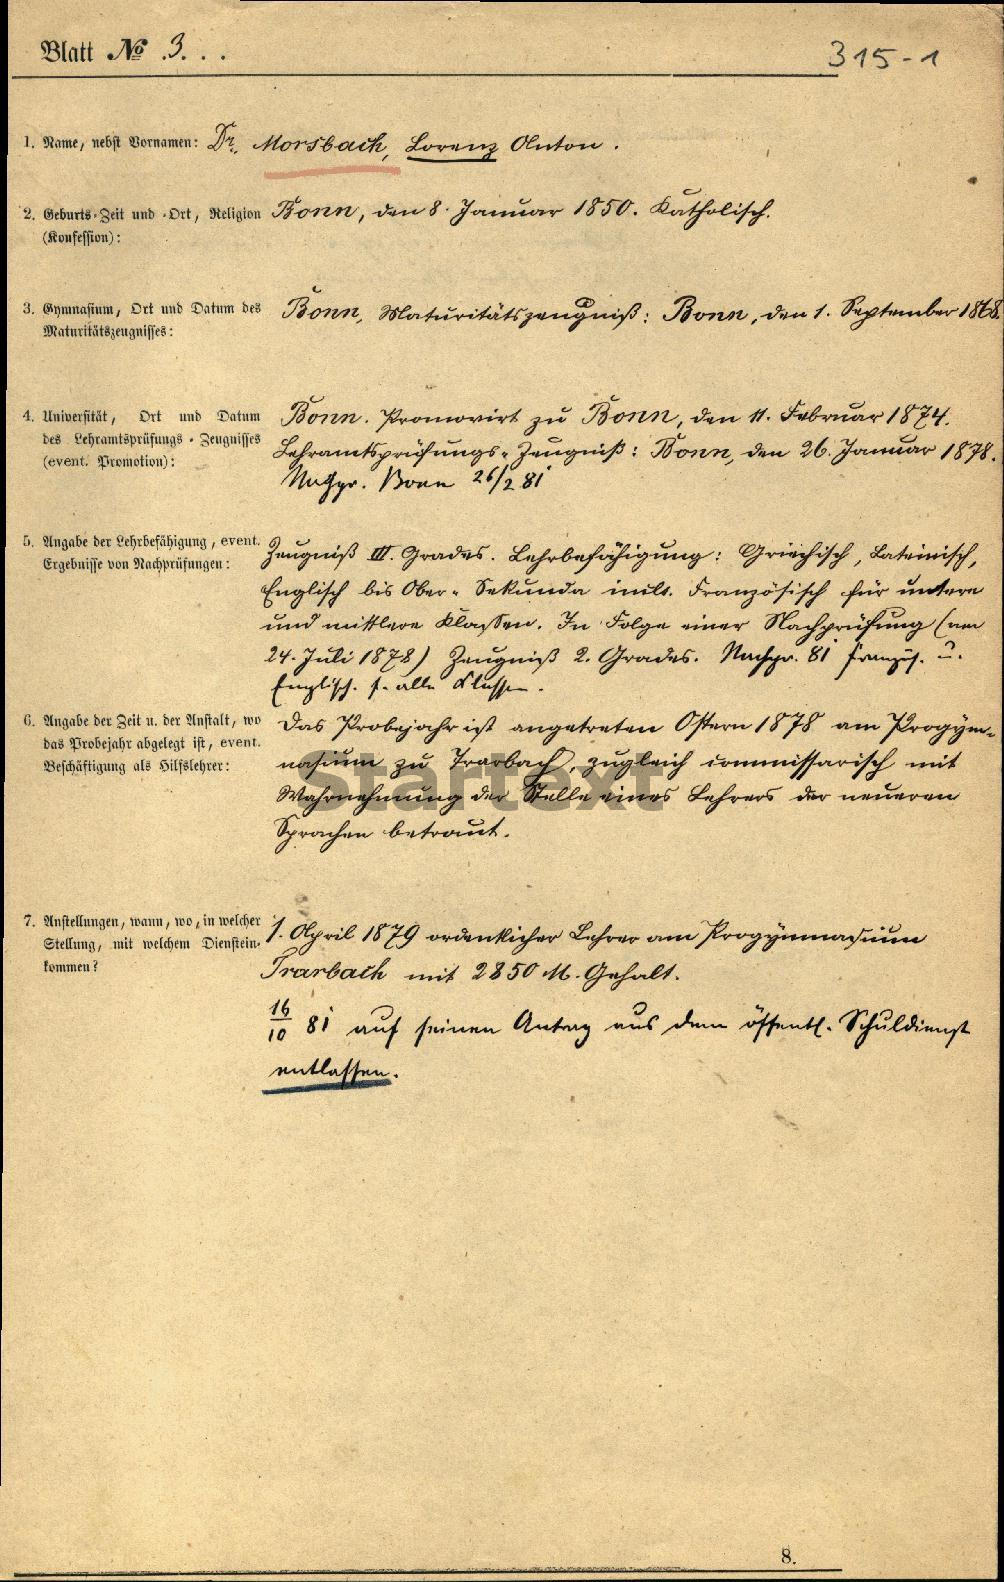 Blatt № 3. . .
315-1
1. Name, nebst Vornamen: Dr. Morsbach, Lorenz Anton.
2. Geburts-Zeit und -Ort, Religion Bonn, den 8. Januar 1850. Katholisch.
(Konfession):
3. Gymnasium, Ort und Datum des Bonn, Maturitätszeugniß: Bonn, den 1. September 1868.
Maturitätszeugnisses:
4. Universität, Ort und Datum Bonn. Promovirt zu Bonn, den 11. Februar 1874.
des Lehramtsprüfungs-Zeugnisses Lehramtsprüfungs-Zeugniß: Bonn, den 26. Januar 1878.
(event. Promotion): Nachpr. Bonn 26/2 81
5. Angabe der Lehrbefähigung, event. Zeugniß III. Grades. Lehrbefähigung: Griechisch, Lateinisch,
Ergebnisse von Nachprüfungen: Englisch bis Ober-Sekunda incl. Französisch für untere
und mittlere Klassen. In Folge einer Nachprüfung (am
24. Juli 1878) Zeugniß 2. Grades. Nachpr. 81 französ. u.
Englisch. f. alle Klassen.
6. Angabe der Zeit u. der Anstalt, wo Das Probejahr ist angetreten Ostern 1878 am Progym-
das Probejahr abgelegt ist, event. nasium zu Trarbach, zugleich commissarisch mit
Beschäftigung als Hilfslehrer: Wahrnehmung der Stelle eines Lehrers der neueren
Sprachen betraut.
startext
7. Anstellungen, wann, wo, in welcher 1. April 1879 ordentlicher Lehrer am Progymnasium
Stellung, mit welchem Dienstein- Trarbach mit 2850 M. Gehalt.
kommen?
16/10 81 auf seinen Antrag aus dem öffentl. Schuldienst
entlassen.
8.